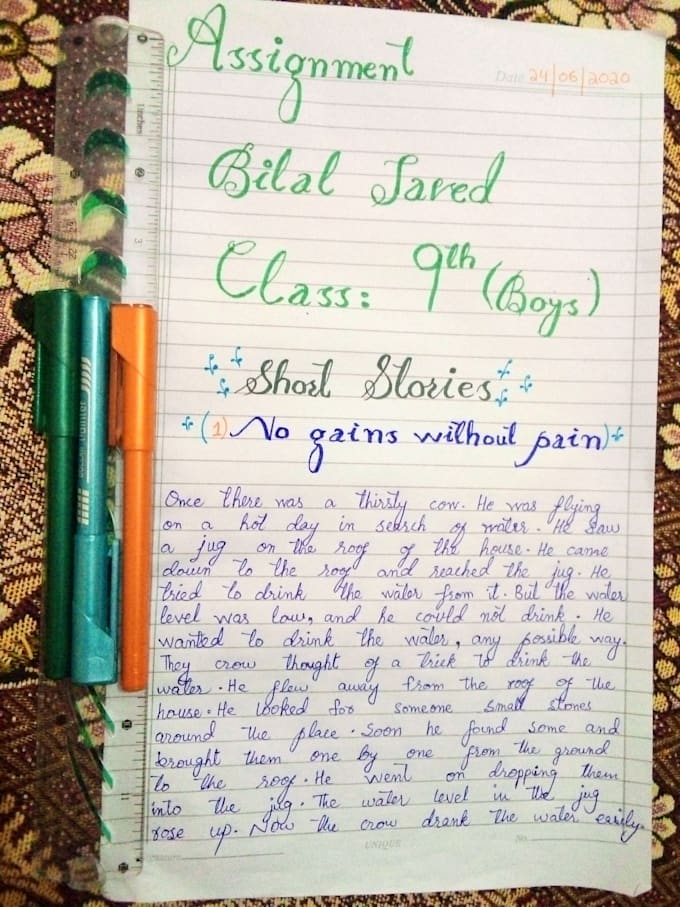 Assignment
Date 24/06/2020
Bilal Javed
Class: 9th (Boys)
Short Stories
(1) No gains without pain
Once there was a thirsty cow. He was flying
on a hot day in search of water. He saw
a jug on the roof of the house. He came
down to the roof and reached the jug. He
tried to drink the water from it. But the water
level was low, and he could not drink. He
wanted to drink the water, any possible way.
They crow thought of a trick to drink the
water. He flew away from the roof of the
house. He looked for someone small stones
around the place. Soon he found some and
brought them one by one from the ground
to the roof. He went on dropping them
into the jug. The water level in the jug
rose up. Now the crow drank the water easily.
UNIQUE
No.